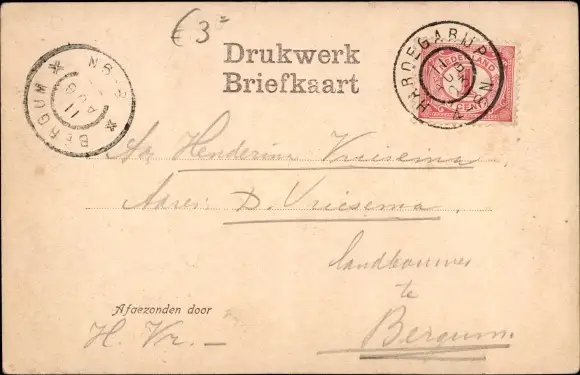 € 3=
Drukwerk
Briefkaart
BERGUM
11
AUG
8-9N
HARDEGARIJP
11
AUG
NEDERLAND
1
CENT
Aa Henderina Vriesema
Adres: D. Vriesema,
landbouwer
te
Bergum.
Afgezonden door
H. Vr. —